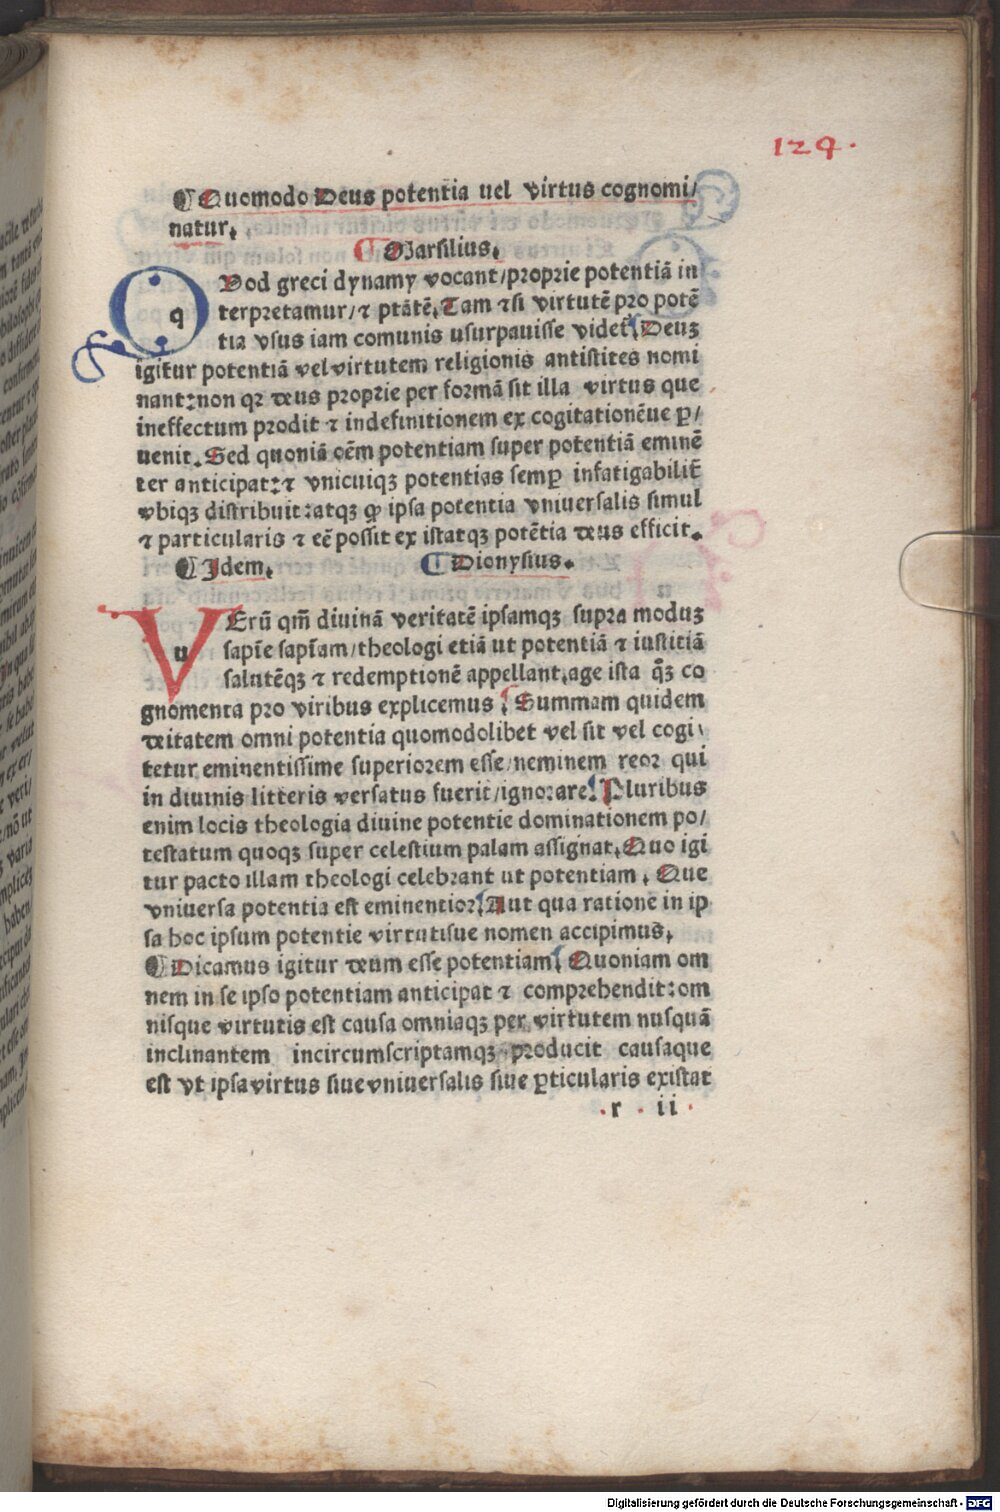 124.
¶ Quomodo Deus potentia uel virtus cognomi/
natur.
¶ Marsilius.
QVod greci dynamy vocant/proprie potentiã in
terpretamur/⁊ ptãtẽ. Tam ⁊si virtutẽ pro potẽ
tia vsus iam comunis usurpauisse videt᷑. Deuꝫ
igitur potentiã vel virtutem religionis antistites nomi
nant: non qꝛ deus proprie per formã sit illa virtus que
ineffectum prodit ⁊ indefinitionem ex cogitationẽue ꝑ/
uenit. Sed quoniã oẽm potentiam super potentiã eminẽ
ter anticipat: ⁊ vnicuiqꝫ potentias semꝑ infatigabilit̃
vbiqꝫ distribuit: atqꝫ ꝙ ipsa potentia vniuersalis simul
⁊ particularis ⁊ eẽ possit ex istatqꝫ potẽtia deus efficit.
¶ Idem. ¶ Dionysius.
VErũ qm̃ diuinã veritatẽ ipsamqꝫ supra moduꝫ
sapĩe sapĩam/theologi etiã ut potentiã ⁊ iustitiã
salutẽqꝫ ⁊ redemptionẽ appellant, age ista q̃ꝫ co
gnomenta pro viribus explicemus. Summam quidem
deitatem omni potentia quomodolibet vel sit vel cogi/
tetur eminentissime superiorem esse/neminem reor qui
in diuinis litteris versatus fuerit/ignorare. Pluribus
enim locis theologia diuine potentie dominationem po/
testatum quoqꝫ super celestium palam assignat. Quo igi
tur pacto illam theologi celebrant ut potentiam. Que
vniuersa potentia est eminentior. Aut qua ratione in ip
sa hoc ipsum potentie virtutisue nomen accipimus.
¶ Dicamus igitur deum esse potentiam. Quoniam om
nem in se ipso potentiam anticipat ⁊ comprehendit: om
nisque virtutis est causa omniaqꝫ per virtutem nusquã
inclinantem incircumscriptamqꝫ producit causaque
est vt ipsa virtus siue vniuersalis siue ꝑticularis existat
.r . ii .
Digitalisierung gefördert durch die Deutsche Forschungsgemeinschaft - DFG